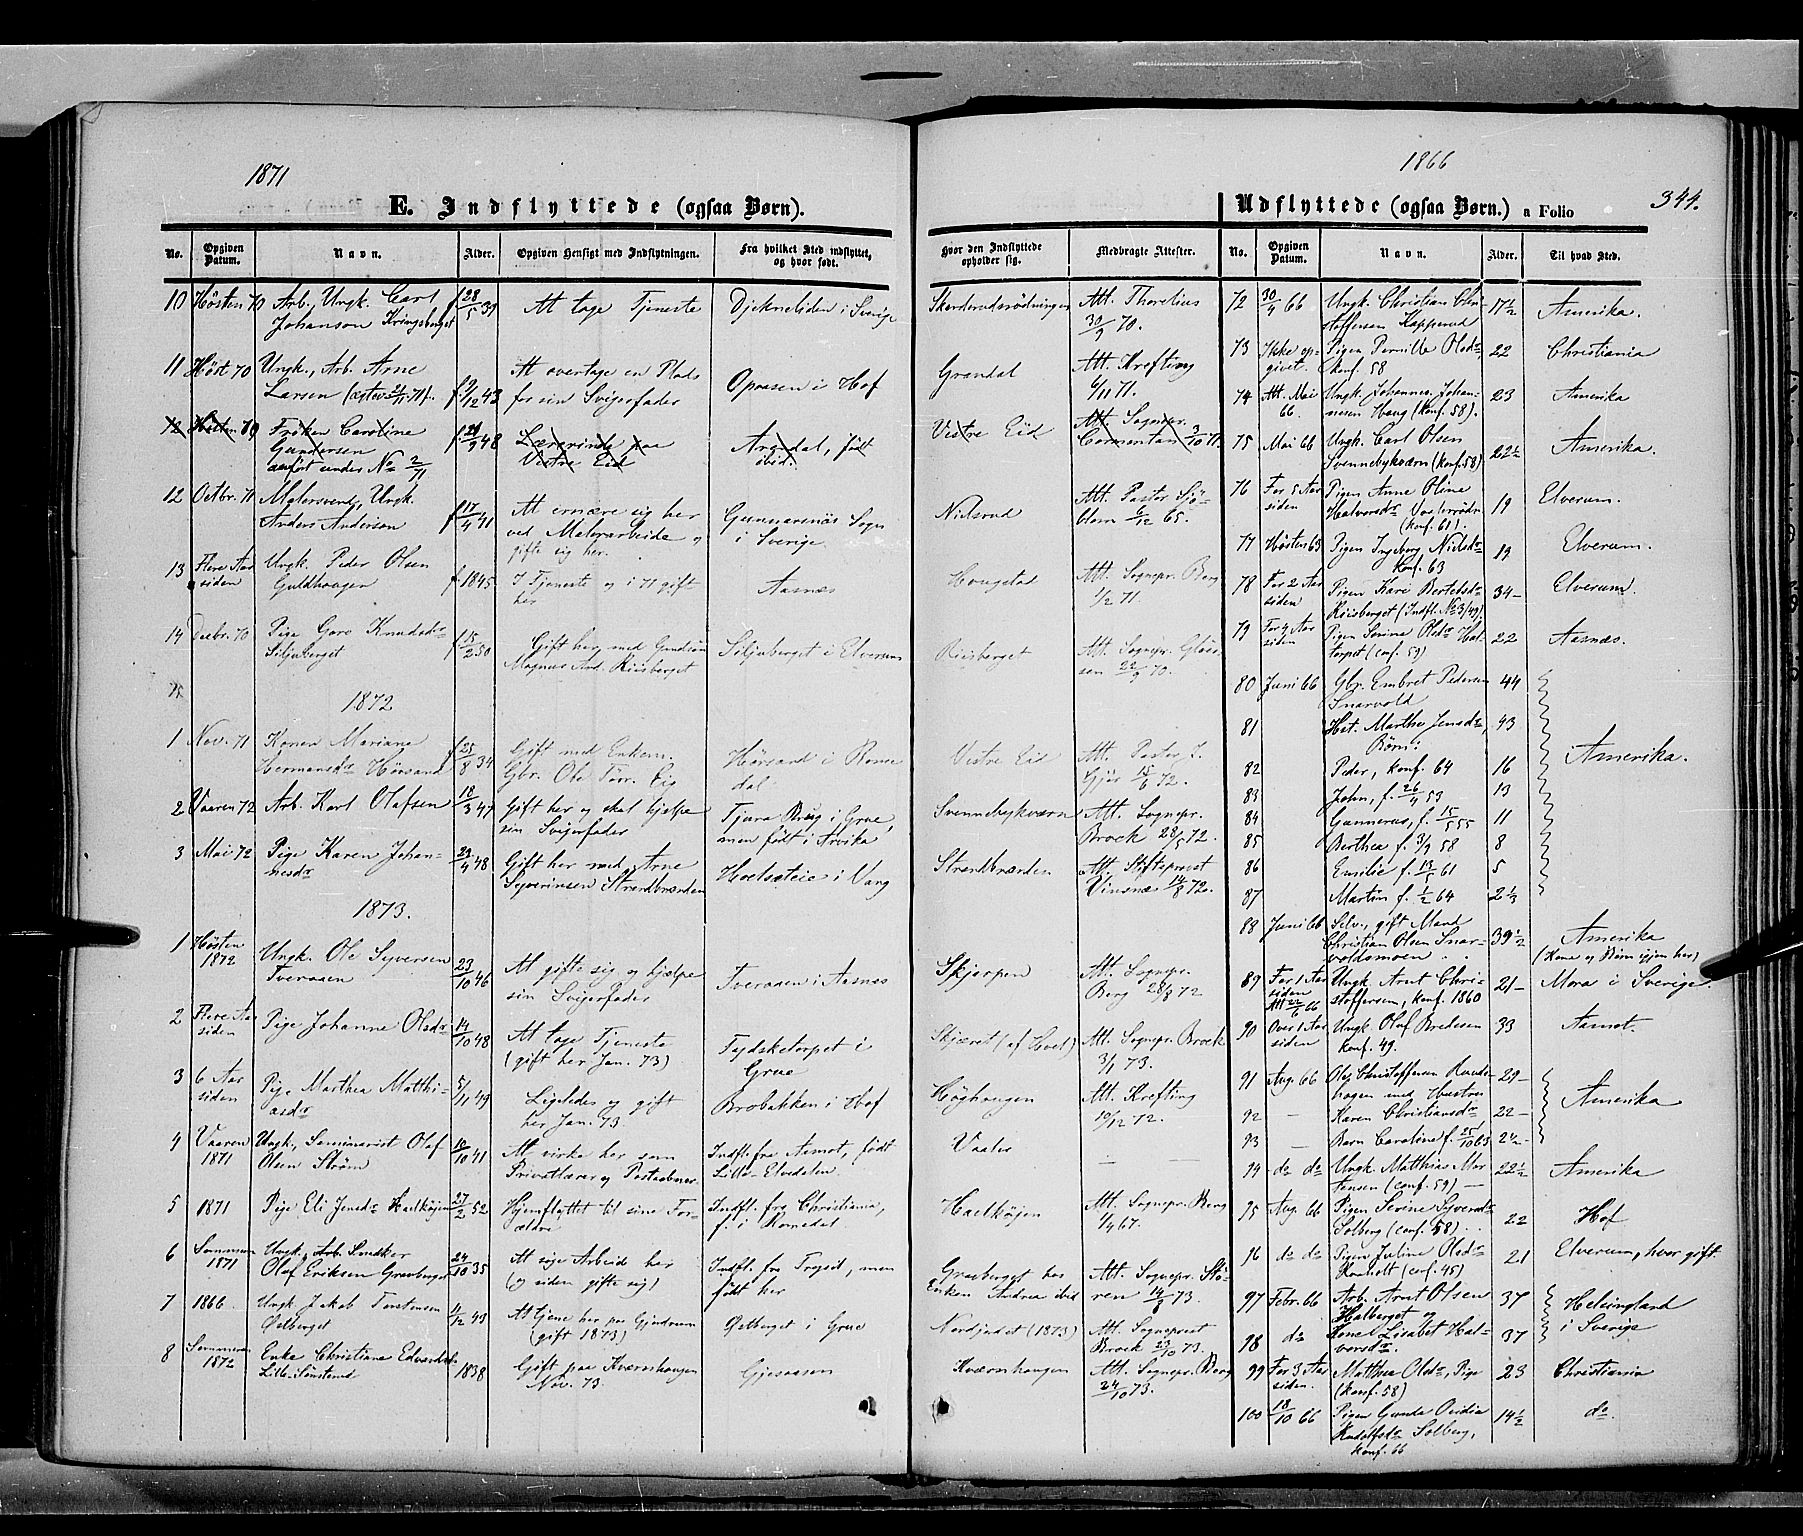 1871
E. Indflyttede (ogsaa Børn).
No. Opgiven Datum. Navn. Alder. Opgiven Hensigt med Indflytningen. Fra hvilket Sted indflyttet, og hvor født. Hvor den Indflyttede opholder sig. Medbragte Attester.
10 Høsten 70 Arb. Ungk. Carl f. 28/5 39 At tage Tjeneste i Sverige Att. Thorelius
Johanson 30/9 70.
11 Høst. 70 Ungk., Arb. Arne At overtage en Plads Opaasen i Hof Grandal Att. Krefting
Larsen f. 9/12 43 for sin Svigerfader 6/11 71.
12 Høsten 70 Frøken Caroline 48 Lærerinde paa Arendal, født Vestre Eid Att. Sognepr.
Gundersen Vestre Eid ibid.
anført under No 2/71
12 Octbr. 71 Malersvend, Ungk. f. 17/4 41 At ernære sig her Gunnarsnäs Sogn Nielsrud Att. Pastor Sjö-
Anders Andersen ved Malerarbeide og i Sverige blom 6/12 65.
gifte sig her.
13 Flere Aar Ungk. Peder Olsen f. 1845 I Tjeneste og i 71 gift Aasnæs Haugstad Att. Sognepr. Berg
siden Guldhaugen her 1/2 71.
14 Decbr. 70 Pige Goro Knudsdr f. 15/2 50 Gift her med Siljuberget i Elverum Riisberget Att. Sognepr.
Siljuberget Magnus And. Riisberget 22/9 70.
1872
1 Nov. 71 Konen Mariane f. 25/8 34 Gift med Enkem. Hørsand i Rome- Vestre Eid Att. Pastor J.
Hermansdr Hørsand Gbr. Ole Torr. Eig dal 72.
2 Vaaren 72 Arb. Karl Olafsen 18/3 47 Gift her og skal hjelpe Tjura Brug i Grue, Svennebykværn Att. Sognepr.
sin Svigerfader men født i Arvika Brock 28/5 72.
3 Mai 72 Pige Karen Johan- 48 Gift her med Arne Hoelsæteie i Vang Strandbrænden Att. Stiftsprovst
nesdr Syverinsen Strandbrænden Vinsnæs 14/8 72.
1873.
1 Høsten 1872 Ungk. Ole Syversen 23/10 46 At gifte sig og hjelpe Tveraaen i Aasnæs Skjærpen Att. Sognepr.
Tveraaen sin Svigerfader Berg 28/8 72
2 Flere Aar Pige Johanne Olsdr 14/10 48 At tage Tjeneste Tydsketorpet i Skjæret (af Hoel) Att. Sognepr. Brock
siden (gift her Jan. 73) Grue 3/1 73.
3 6 Aar Pige Marthea Matthi- 5/11 49 Ligeledes og gift Brobakken i Hof Høghaugen Att. Krefting
siden asdr her Jan. 73 19/12 72.
4 Vaaren Ungk., Seminarist Olaf 41 At virke her som Indfl. fra Aamot, født Vaaler —
1871 Olsen Strøm Privatlærer og Postaabner Lille-Elvedalen
5 1871 Pige Eli Jensdr Haelkøjen 27/2 52 Hjemflyttet til sine For- Indfl. fra Christiania, Haelkøjen Att. Sognepr. Berg
ældre f. i Romedal 1/4 67.
6 Sommeren Ungk., Arb. Snedker 24/10 35 At søge Arbeid her Indfl. fra Trysil, men Graaberget hos Att. Sognepr. Stø-
1871 Olaf Eriksen Graaberget (og siden gifte sig) født her Enken Andrea ibid ren 14/8 73.
7 1866. Ungk. Jakob Torstensen 43 At tjene her paa Gjendrum Øieberget i Grue Nordjudet (1873) Att. Sogneprest
(gift 1873) Brock 23/10 73.
8 Sommeren Enke Christiane Edvardsdr 1838 Gift paa Kværnhaugen Gjesaasen Kværnhaugen Att. Sognepr. Berg
1872 Lille-Sønsterud Nov. 73 24/10 73.
1866
344.
Udflyttede (ogsaa Børn.) a Folio
No. Opgiven Datum. Navn. Alder. Til hvad Sted.
72 30/4 66 Ungk. Christian Chri- 17½ Amerika.
stoffersen Kapperud
73 Ikke op- Pigen Pernille Olsdr, 22 Christiania
givet. konf. 58
74 Att. Mai Ungk. Johannes Johan- 23 Amerika
66. nesen Haug (konf. 58).
75 Mai 66 Ungk. Carl Olsen 22½ Amerika.
Svennebykværn (konf. 58)
76 For 5 Aar Pigen Anne Oline 19 Elverum.
siden Halvorsdr
(konf. 61).
77 Høsten 63 Pigen Ingeborg Nielsdr 19 Elverum.
konf. 63
78 For 2 Aar Pigen Kari Bertelsdr 34 – Elverum.
siden Riisberget (Indfl. No 3/49)
79 For 4 Aar Pigen Serine Olsdr Hal- 22 Aasnæs.
siden torpet (conf. 59)
80 Juni 66 Gbr. Embret Pedersen 44
Snarvold
81 Hst. Marthe Jensdr, 43
Børn: Amerika.
82 Peder, konf. 64 16
83 John, f. 26/4 53 13
84 Gunnerus, f. 15/5 55 11
85 Berthea f. 3/9 58 8
86 Emilie f. 61 5
87 Martin f. 1/2 64 2⅓
88 Juni 66 Selv., gift Mand 39½ Amerika
Christian Olsen Snar- (Kone og Børn igjen her)
voldsmoen
89 For 1 Aar Ungk. Arnt Chri- 21 – Mora i Sverige.
siden stoffersen, konf. 1860
Att 22/6 66
90 Over 1 Aar Ungk. Olaf Bredesen 33 Aamot.
siden konf. 49.
91 Aug. 66 Olej Christoffersen Runde- 29 –
haugen med Hustru Amerika
92 – Karen Christiansdr 22 –
93 – Barn Caroline f. 25/10 63
94 do do Ungk. Matthias Mor- 22½ Amerika
tensen (conf. 59) —
95 Aug. 66 Pigen Serine Syversdr 22 Hof
Solberg (conf. 58)
96 do do Pigen Juline Olsdr 21 Elverum, hvor gift
(conf. 45)
97 Febr. 66 Arb. Arnt Olsen 37 Helsingland
Halberget og i Sverige
98 do Kone Lisabet Hal- 37
vorsdr.
99 For 3 Aar Matthea Olsdr, Pige 23 Christiania
siden. (konf. 58)
100 18/10 66 Pigen Gunda Ovidia 14½ do.
Rudolfsdr Solberg,
konf. 66